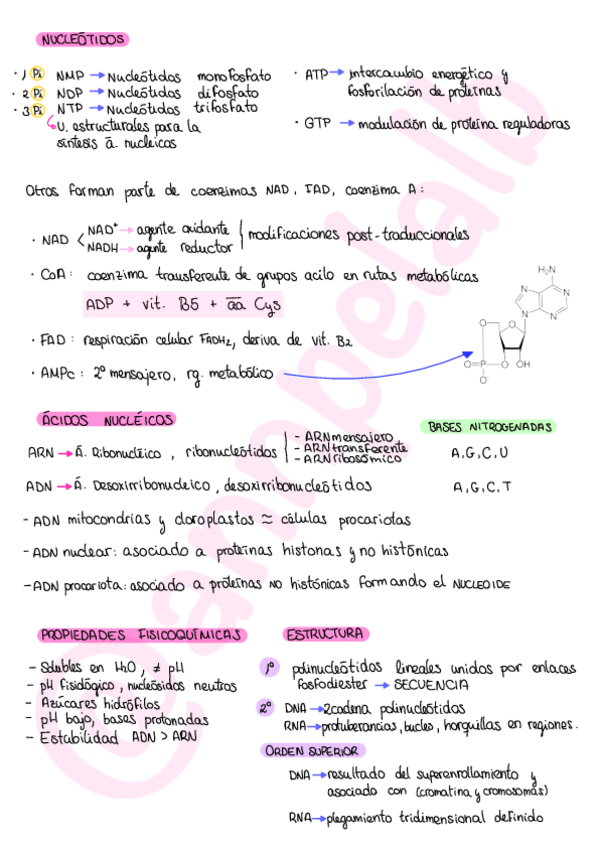 NUCLEÓTIDOS
· 1 Pi NMP → Nucleótidos monofosfato
· 2 Pi NDP → Nucleótidos difosfato
· 3 Pi NTP → Nucleótidos trifosfato
U. estructurales para la
síntesis á. nucleicos
· ATP → intercambio energético y
fosforilación de proteínas
· GTP → modulación de proteína reguladoras
Otros forman parte de coenzimas NAD, FAD, coenzima A:
· NAD
NAD⁺ → agente oxidante
NADH → agente reductor
modificaciones post-traduccionales
· CoA: coenzima transferente de grupos acilo en rutas metabólicas
ADP + vit. B5 + aa Cys
· FAD: respiración celular FADH₂, deriva de vit. B2
· AMPc: 2º mensajero, rg. metabólico
H₂N
N
N
N
N
O
O
O=P
O
O⁻
OH
ÁCIDOS NUCLÉICOS
BASES NITROGENADAS
ARN → Á. Ribonucléico, ribonucleótidos
- ARN mensajero
- ARN transferente
- ARN ribosómico
A, G, C, U
ADN → Á. Desoxirribonucleico, desoxirribonucleótidos
A, G, C, T
- ADN mitocondrias y cloroplastos ≈ células procariotas
- ADN nuclear: asociado a proteínas histonas y no histónicas
- ADN procariota: asociado a proteínas NO histónicas formando el NUCLEOIDE
PROPIEDADES FISICOQUÍMICAS
- Solubles en H₂O, ≠ pH
- pH fisiológico, nucleósidos neutros
- Azúcares hidrófilos
- pH bajo, bases protonadas
- Estabilidad ADN > ARN
ESTRUCTURA
1º polinucleótidos lineales unidos por enlaces
fosfodiester → SECUENCIA
2º DNA → 2 cadena polinucleótidos
RNA → protuberancias, bucles, horquillas en regiones.
ORDEN SUPERIOR
DNA → resultado del superenrollamiento y
asociado con (cromatina y cromosomas)
RNA → plegamiento tridimensional definido